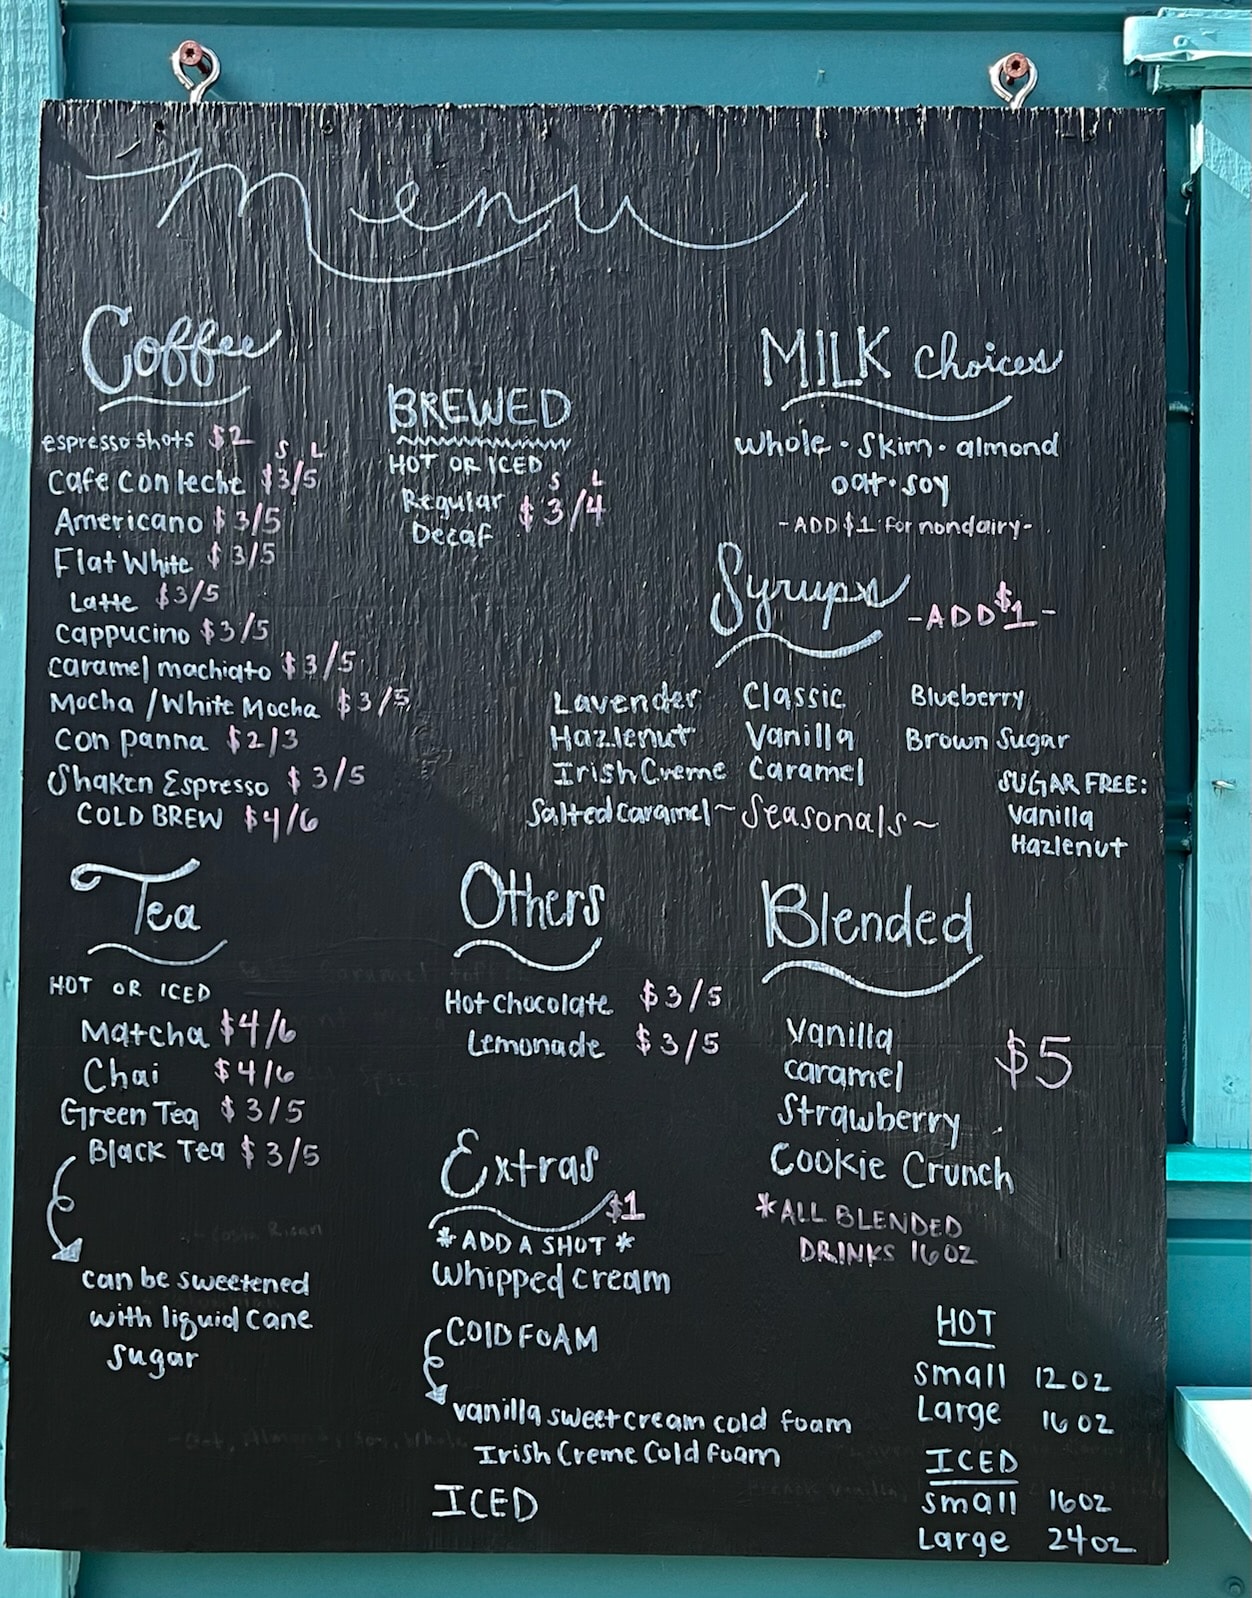 Menu
Coffee
espresso shots $2
S L
Cafe Con leche $3/5
Americano $3/5
Flat White $3/5
Latte $3/5
Cappucino $3/5
Caramel machiato $3/5
Mocha / White Mocha $3/5
Con panna $2/3
Shaken Espresso $3/5
COLD BREW $4/6
BREWED
HOT OR ICED
S L
Regular $3/4
Decaf
MILK Choices
Whole · Skim · almond
oat · soy
- ADD $1 for nondairy -
Syrups - ADD $1 -
Lavender Classic Blueberry
Hazlenut Vanilla Brown Sugar
Irish Creme Caramel
Salted Caramel ~ Seasonals ~
SUGAR FREE:
Vanilla
Hazlenut
Tea
HOT OR ICED
Matcha $4/6
Chai $4/6
Green Tea $3/5
Black Tea $3/5
can be sweetened
with liquid cane
sugar
Others
Hot Chocolate $3/5
Lemonade $3/5
Extras
$1
* ADD A SHOT *
Whipped Cream
COLD FOAM
vanilla sweet cream cold foam
Irish Creme Cold Foam
ICED
Blended
Vanilla
caramel $5
Strawberry
Cookie Crunch
* ALL BLENDED
DRINKS 16 OZ
HOT
Small 12 oz
Large 16 oz
ICED
Small 16 oz
Large 24 oz